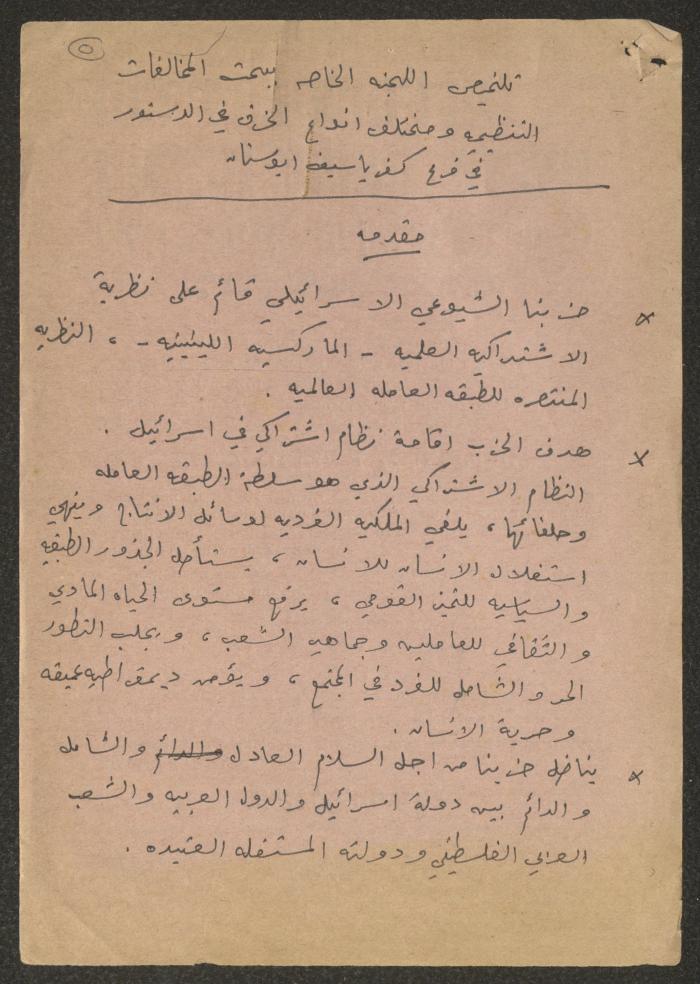 ٥
تلخيص اللجنه الخاصه ببحث المخالفات
التنظيميه ومختلف انواع الخرق في الدستور
في فرع كفر ياسيف ابوسنان
مقدمه
× حزبنا الشيوعي الاسرائيلي قائم على نظرية
الاشتراكيه العلميه - الماركسيه اللينينيه - ، النظريه
المنتصره للطبقه العامله العالميه .
× هدف الحزب اقامة نظام اشتراكي في اسرائيل .
النظام الاشتراكي الذي هو سلطة الطبقه العامله
وحلفائها ، يلغي الملكيه الفرديه لوسائل الانتاج وينهي
استغلال الانسان للانسان ، يستأصل الجذور الطبقيه
والسياسيه للتميز القومي ، يرفع مستوى الحياه المادي
والثقافي للعاملين وجماهير الشعب ، ويجلب التطور
الحر والشامل للفرد في المجتمع ، ويؤمن ديمقراطيه عميقه
وحرية الانسان .
× يناضل حزبنا من اجل السلام العادل والدائم والشامل
والدائم بين دولة اسرائيل والدول العربيه والشعب
العربي الفلسطيني ودولته المستقله العتيده .